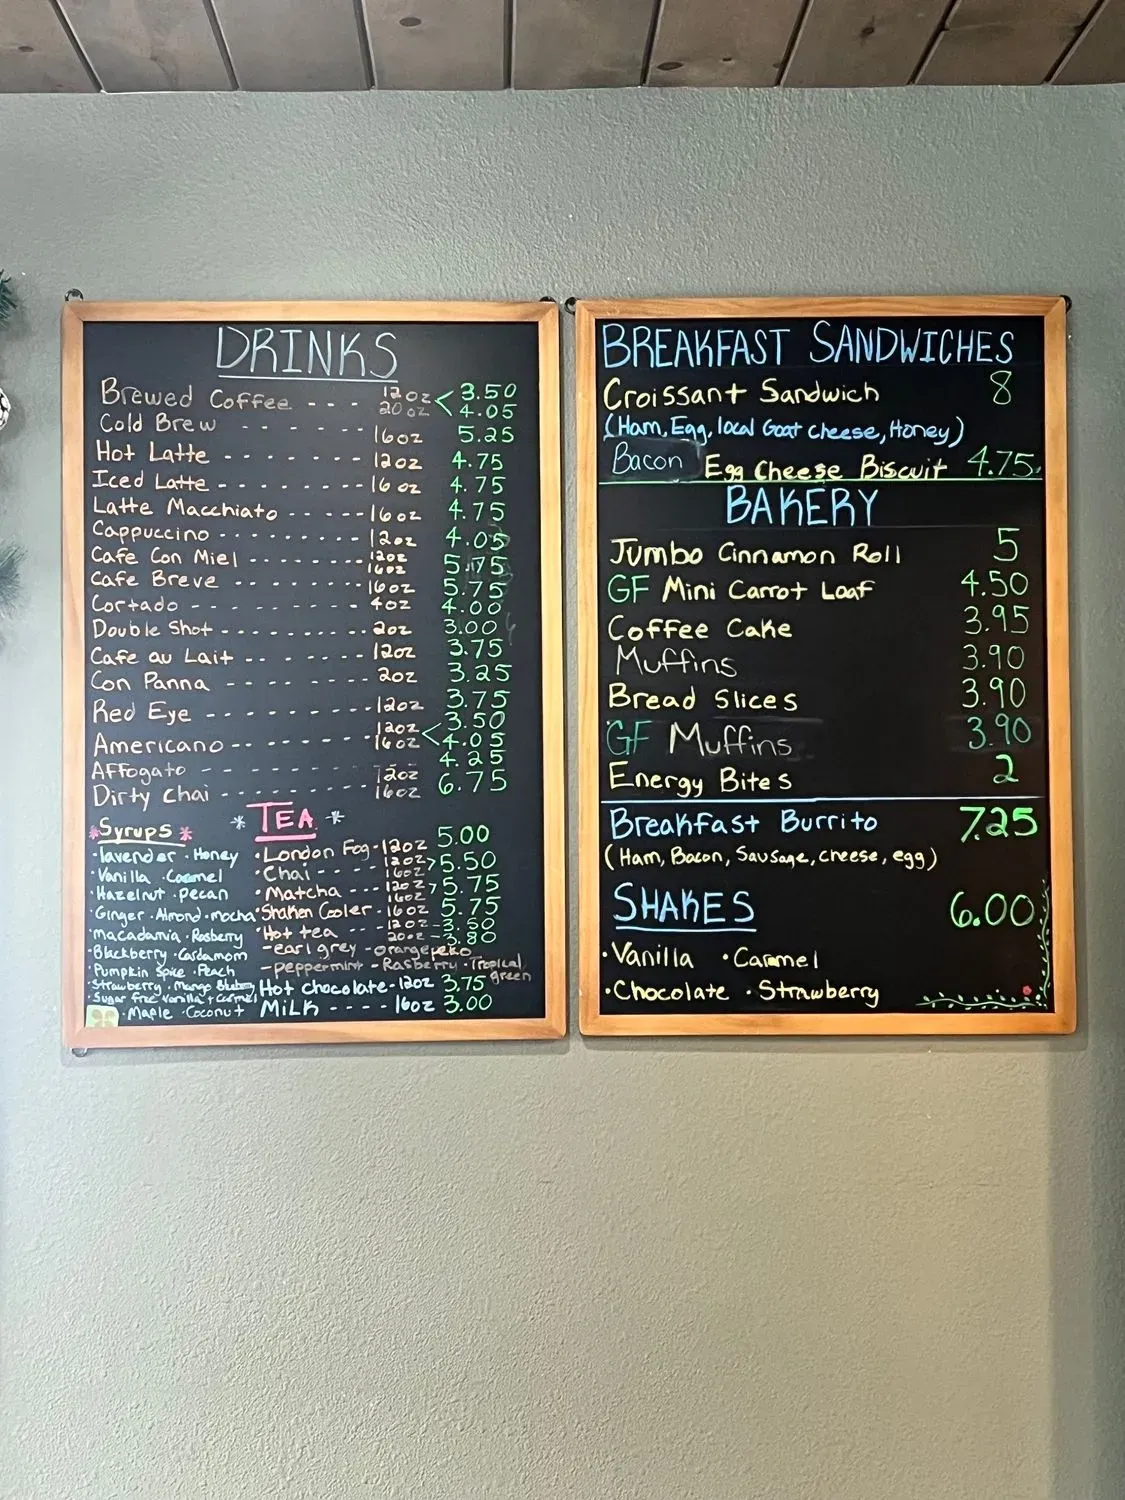 DRINKS
Brewed Coffee - - - 12oz < 3.50
20oz 4.05
Cold Brew - - - - - - 16oz 5.25
Hot Latte - - - - - - - - 12oz 4.75
Iced Latte - - - - - - - - 16oz 4.75
Latte Macchiato - - - - - 16oz 4.75
Cappuccino - - - - - - - - - 12oz 4.05
Cafe Con Miel - - - - - - - 12oz 5.75
16oz
Cafe Breve - - - - - - - - 16oz 5.75
Cortado - - - - - - - - - - 4oz 4.00
Double Shot - - - - - - - - - 2oz 3.00
Cafe au Lait - - - - - - - 12oz 3.75
Con Panna - - - - - - - - 2oz 3.25
Red Eye - - - - - - - - - - 12oz 3.75
Americano - - - - - - - - - 12oz < 3.50
16oz 4.05
Affogato - - - - - - - - - 12oz 4.25
Dirty Chai - - - - - - - - - 16oz 6.75
*Syrups*
• lavender • Honey
• Vanilla • Caramel
• Hazelnut • pecan
• Ginger • Almond • mocha
• macadamia • Rasberry
• Blackberry • Cardamom
• Pumpkin Spice • Peach
• Strawberry • Mango
• Sugar free vanilla + carmel
• Maple • Coconut
* TEA *
• London Fog - 12oz 5.00
• Chai - - - - 12oz > 5.50
16oz
• Matcha - - - 12oz > 5.75
16oz
• Shaken Cooler - 16oz 5.75
• Hot tea - - - 12oz - 3.50
20oz - 3.80
- earl grey - orange peko
- peppermint - Rasberry - Tropical green
Hot chocolate - 12oz 3.75
Milk - - - - 16oz 3.00
BREAKFAST SANDWICHES
Croissant Sandwich 8
(Ham, Egg, local Goat cheese, Honey)
Bacon Egg Cheese Biscuit 4.75
BAKERY
Jumbo Cinnamon Roll 5
GF Mini Carrot Loaf 4.50
Coffee Cake 3.95
Muffins 3.90
Bread Slices 3.90
GF Muffins 3.90
Energy Bites 2
Breakfast Burrito 7.25
(Ham, Bacon, Sausage, cheese, egg)
SHAKES 6.00
• Vanilla • Caramel
• Chocolate • Strawberry